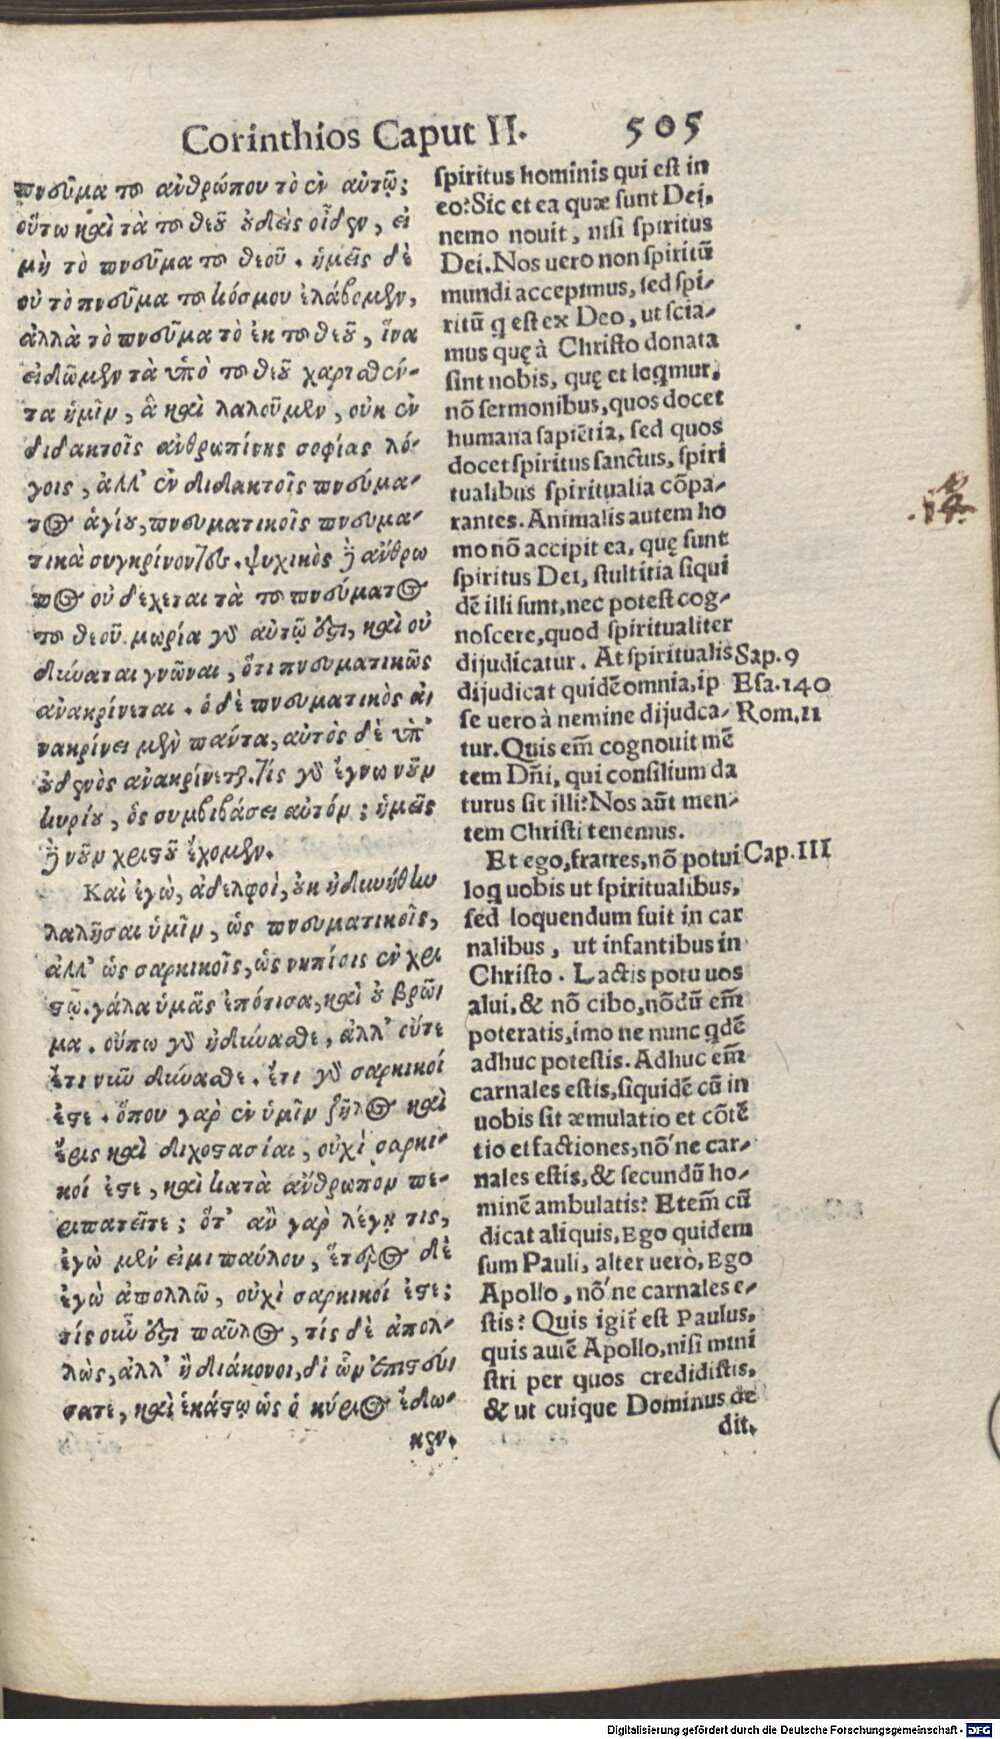 Corinthios Caput II. 505
πνεῦμα τοῦ ἀνθρώπου τὸ ἐν αὐτῷ;
οὕτω καὶ τὰ τοῦ θεοῦ οὐδεὶς οἶδεν, εἰ
μὴ τὸ πνεῦμα τοῦ θεοῦ. ἡμεῖς δὲ
οὐ τὸ πνεῦμα τοῦ κόσμου ἐλάβομεν,
ἀλλὰ τὸ πνεῦμα τὸ ἐκ τοῦ θεοῦ, ἵνα
εἰδῶμεν τὰ ὑπὸ τοῦ θεοῦ χαρισθέν-
τα ἡμῖν, ἃ καὶ λαλοῦμεν, οὐκ ἐν
διδακτοῖς ἀνθρωπίνης σοφίας λό-
γοις, ἀλλ' ἐν διδακτοῖς πνεύμα-
τος ἁγίου, πνευματικοῖς πνευμα-
τικὰ συγκρίνοντες. ψυχικὸς δὲ ἄνθρω
πος οὐ δέχεται τὰ τοῦ πνεύματος
τοῦ θεοῦ. μωρία γὰρ αὐτῷ ἐστι, καὶ οὐ
δύναται γνῶναι, ὅτι πνευματικῶς
ἀνακρίνεται. ὁ δὲ πνευματικὸς ἀ
νακρίνει μὲν πάντα, αὐτὸς δὲ ὑπ'
οὐδενὸς ἀνακρίνεται. τίς γὰρ ἔγνω νοῦν
κυρίου, ὃς συμβιβάσει αὐτόν; ἡμεῖς
δὲ νοῦν χριστοῦ ἔχομεν.
Καὶ ἐγὼ, ἀδελφοί, οὐκ ἠδυνήθην
λαλῆσαι ὑμῖν, ὡς πνευματικοῖς,
ἀλλ' ὡς σαρκικοῖς, ὡς νηπίοις ἐν χρι
στῷ. γάλα ὑμᾶς ἐπότισα, καὶ οὐ βρῶ
μα. οὔπω γὰρ ἠδύνασθε, ἀλλ' οὔτε
ἔτι νῦν δύνασθε. ἔτι γὰρ σαρκικοί
ἐστε. ὅπου γὰρ ἐν ὑμῖν ζῆλος καὶ
ἔρις καὶ διχοστασίαι, οὐχὶ σαρκι-
κοί ἐστε, καὶ κατὰ ἄνθρωπον πε-
ριπατεῖτε; ὅτ' ἂν γὰρ λέγῃ τις,
ἐγὼ μέν εἰμι παύλου, ἕτερος δὲ
ἐγὼ ἀπολλῶ, οὐχὶ σαρκικοί ἐστε;
τίς οὖν ἐστι παῦλος, τίς δὲ ἀπολ-
λὼς, ἀλλ' ἢ διάκονοι, δι ὧν ἐπιστεύ
σατε, καὶ ἑκάστῳ ὡς ὁ κύριος ἔδω-
κεν.
spiritus hominis qui est in
eo? Sic et ea quæ sunt Dei,
nemo novit, nisi spiritus
Dei. Nos uero non spiritũ
mundi accepimus, sed spi-
ritũ q est ex Deo, ut scia-
mus quę à Christo donata
sint nobis, quę et loqmur,
nõ sermonibus, quos docet
humana sapiẽtia, sed quos
docet spiritus sanctus, spiri
tualibus spiritualia cõpa-
rantes. Animalis autem ho
mo nõ accipit ea, quę sunt
spiritus Dei, stultitia siqui
dẽ illi sunt, nec potest cog-
noscere, quod spiritualiter
dijudicatur. At spiritualis
dijudicat quidẽ omnia, ip
se uero à nemine dijudca-
tur. Quis em̃ cognouit mẽ
tem Dñi, qui consilium da
turus sit illi? Nos aũt men-
tem Christi tenemus.
Sap. 9
Esa. 140
Rom. 11
Et ego, fratres, nõ potui
loq uobis ut spiritualibus,
sed loquendum fuit in car
nalibus, ut infantibus in
Christo. Lactis potu uos
alui, & nõ cibo, nõdũ em̃
poteratis, imo ne nunc qdẽ
adhuc potestis. Adhuc em̃
carnales estis, siquidẽ cũ in
uobis sit æmulatio et cõtẽ
tio et factiones, nõ ne car-
nales estis, & secundũ ho-
minẽ ambulatis? Etem̃ cũ
dicat aliquis, Ego quidem
sum Pauli, alter uerò, Ego
Apollo, nõ ne carnales e-
stis? Quis igit̃ est Paulus,
quis autẽ Apollo, nisi mini
stri per quos credidistis,
& ut cuique Dominus de
dit.
Cap. III
Digitalisierung gefördert durch die Deutsche Forschungsgemeinschaft - DFG